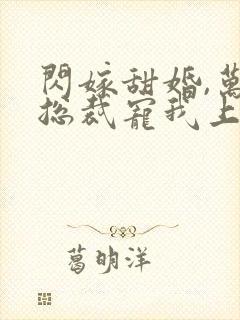 閃嫁甜婚,萬
總裁寵我上
葛明洋